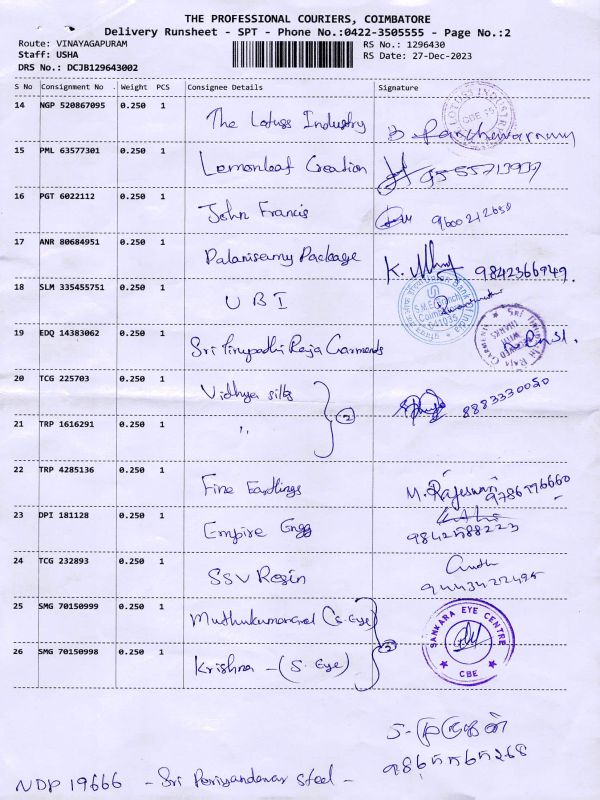 THE PROFESSIONAL COURIERS, COIMBATORE
Delivery Runsheet - SPT - Phone No.:0422-3505555 - Page No.:2
Route: VINAYAGAPURAM RS No.: 1296430
Staff: USHA RS Date: 27-Dec-2023
DRS No.: DCJB129643002
S No Consignment No . Weight PCS Consignee Details Signature
14 NGP 520867095 0.250 1
The Lotuss Industry
15 PML 63577301 0.250 1
Lemonleaf Creation
16 PGT 6022112 0.250 1
John Francis 9600212650
17 ANR 80684951 0.250 1
Palanisamy Package K. 9842366949.
18 SLM 335455751 0.250 1
UBI
19 EDQ 14383062 0.250 1
Sri Tirupathi Raja Garments
20 TCG 225703 0.250 1
Vidhya silks 8883330050
(2)
21 TRP 1616291 0.250 1
"
22 TRP 4285136 0.250 1
Fine Eardlings M. Rajeswari
23 DPI 181128 0.250 1
Empire Engg 9842588223
24 TCG 232893 0.250 1
SSV Resin 9443422495
25 SMG 70150999 0.250 1
(S. Eye)
SANKARA EYE CENTRE
CBE
(2)
26 SMG 70150998 0.250 1
Krishna - (S. Eye)
NDP 19666 - Sri Periyandavar Steel -